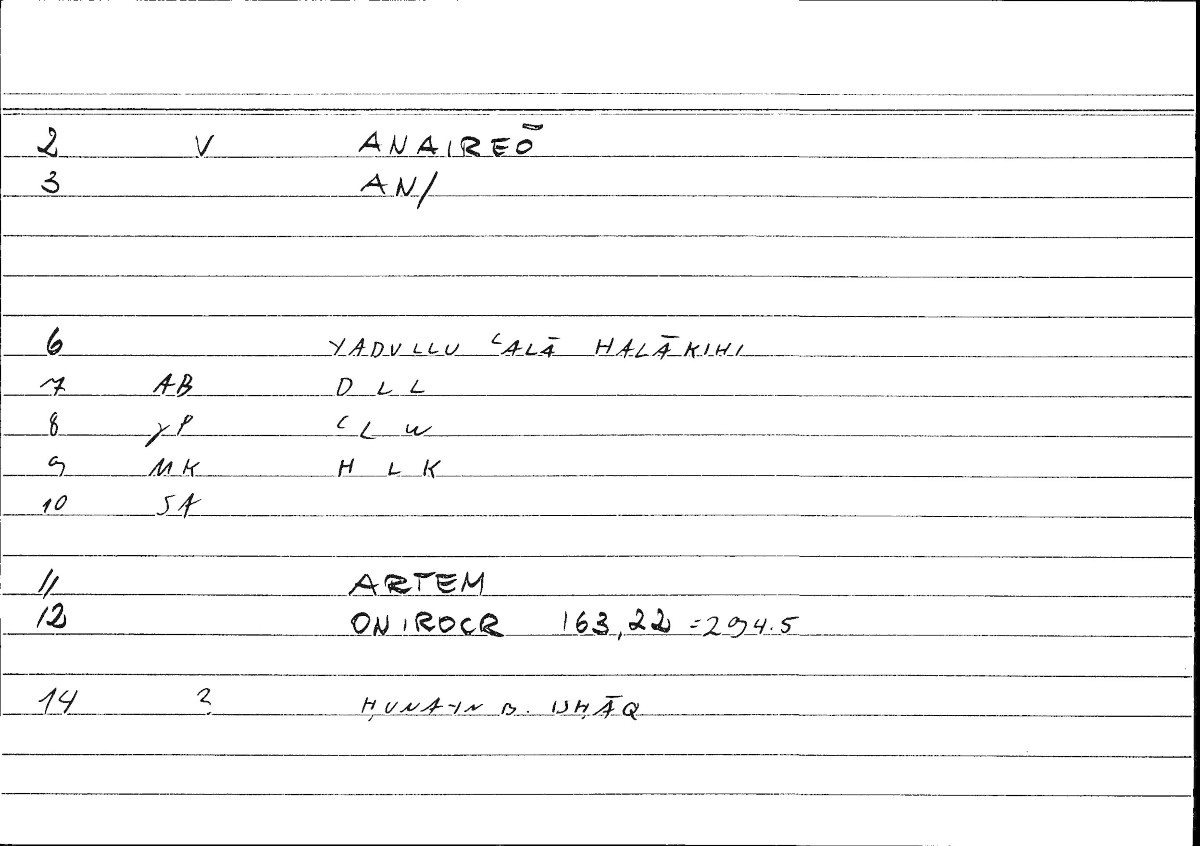 2 V ANAIREŌ
3 AN/
6 YADULLU ʿALĀ HALĀKIHI
7 AB D L L
8 YP ʿL W
9 MK H L K
10 SA
11 ARTEM
12 ONIROCR 163,22 = 294.5
14 ? ḤUNAYN B. ISḤĀQ